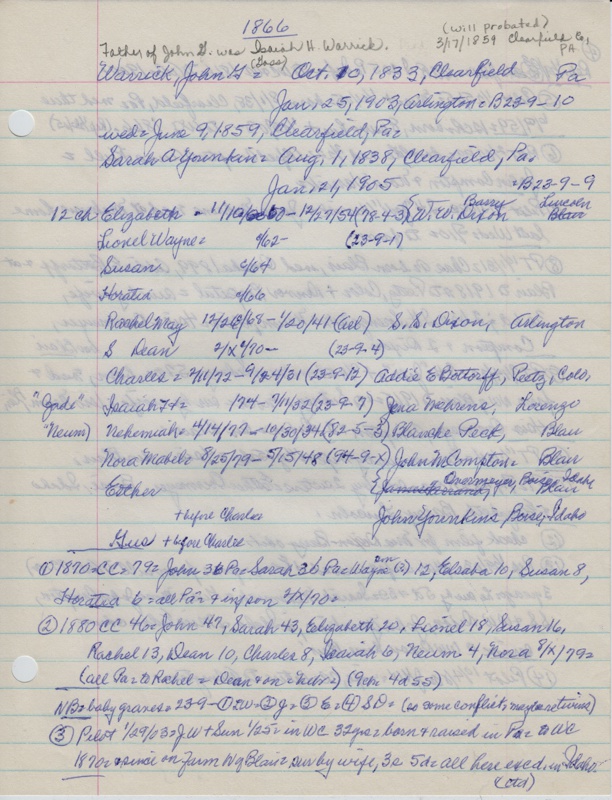 1866
(will probated)
3/17/1859 Clearfield Co, PA
Father of John G. was Isaiah H. Warrick.
(Goss)
Warrick, John G = Oct. 10, 1833, Clearfield Pa
Jan. 25, 1903, Arlington = B23-9-10
wed = June 9, 1859, Clearfield, Pa =
Sarah A Younkin = Aug. 1, 1838, Clearfield, Pa.
Jan. 21, 1905 = B23-9-9
12 ch Elizabeth = 11/10/60 - 12/27/54 (78-4-3) W. W. Dixon Barry Lincoln Blair
Lionel Wayne = c/62- (23-9-1)
Susan c/64
Horatia c/66
Rachel May 12/26/68 - 1/20/41 (Arl) S. S. Dixon, Arlington
S Dean 2/X/70- (23-9-4)
Charles = 2/11/72 - 9/24/31 (23-9-12) Addie E Bottorff, Peetz, Colo,
"Zade" Isaiah H = 174 - 7/1/32 (23-9-7) Jena Mehrens, Lorenzo
"Neum" Nehemiah = 4/14/77 - 10/30/34 (82-5-3) Blanche Peck, Blair
Nora Mabel = 8/25/79 - 5/15/48 (94-9-X) John M Compton = Blair
Esther Overmeyer, Boise, Idaho
Blair
+ before Charles John Younkins, Boise, Idaho
Gus + before Charlie
① 1870 = CC = 79 = John 36 Pa = Sarah 36 Pa = Wayne (?) 12, Elzaba 10, Susan 8,
Horatia 6 = all Pa = + inf son 2/X/70 =
② 1880 CC 46 = John 47, Sarah 43, Elizabeth 20, Lionel 18, Susan 16,
Rachel 13, Dean 10, Charles 8, Isaiah 6, Neum = 4, Nora 8/X/79 =
(all Pa = to Rachel = Dean + on = Nebr =) (9en = 4 d 55)
NB = baby graves = 23-9 - ① LW = ③ J = ⑤ E = ④ SD = (so some conflict, maybe twins)
③ Pilot 1/29/03 = JW + Sun 1/25 = in WC 32 yrs = born + raised in Pa = to WC
1870 = since on farm W of Blair = sur by wife, 3s 5d = all here excd. in Idaho =
(ctd)